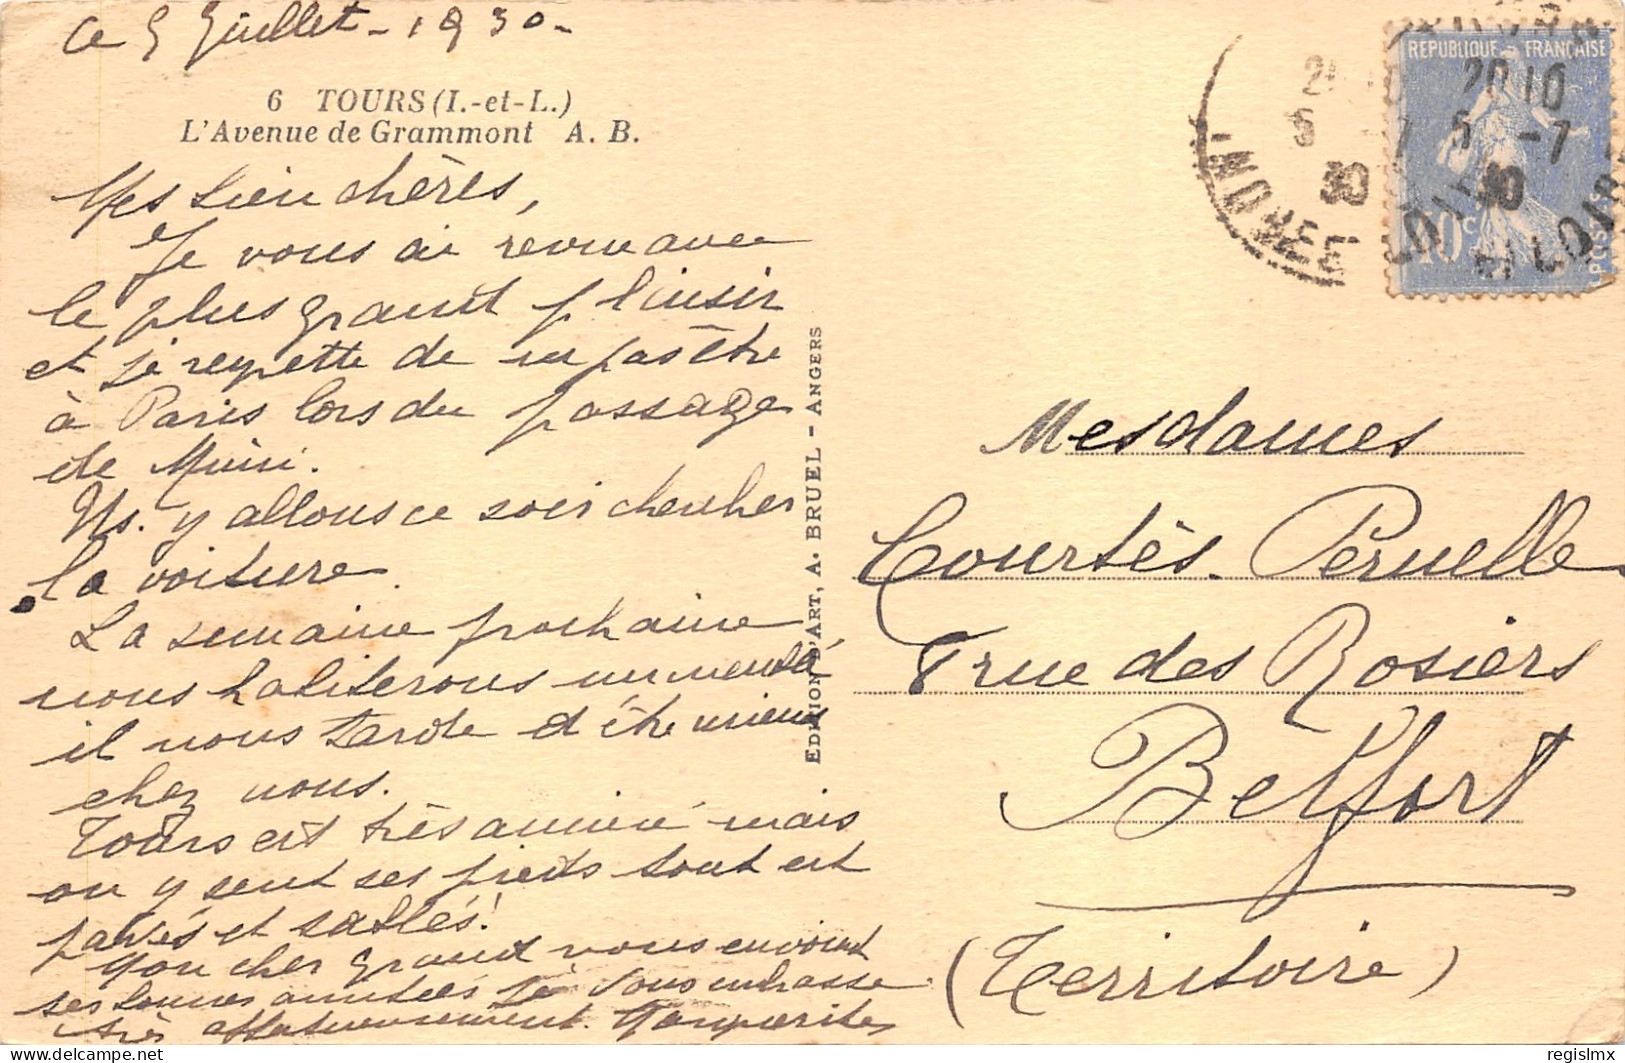 Ce 5 Juillet - 1930 -
6 TOURS (I.-et-L.)
L'Avenue de Grammont A. B.
Mes bien chères,
Je vous ai revu avec
le plus grand plaisir
et je regrette de ne pas être
à Paris lors du passage
de Mimi.
Ns. y allons ce soir chercher
la voiture
La semaine prochaine
nous habiterons
il nous tarde d'être mieux
chez nous.
Tours est très animé mais
on y sent ses pieds tout est
pavés et sablés!
Mon cher grand vous envoient
ses bonnes amitiés je vous embrasse
très affectueusement. Marguerite
EDITION D'ART, A. BRUEL - ANGERS
REPUBLIQUE FRANÇAISE
POSTES
40c
20 10
5 -7
30
INDRE ET LOIRE
Mesdames
Courtès. Péruelle
8 rue des Rosiers
Belfort
(Territoire)
regislmx